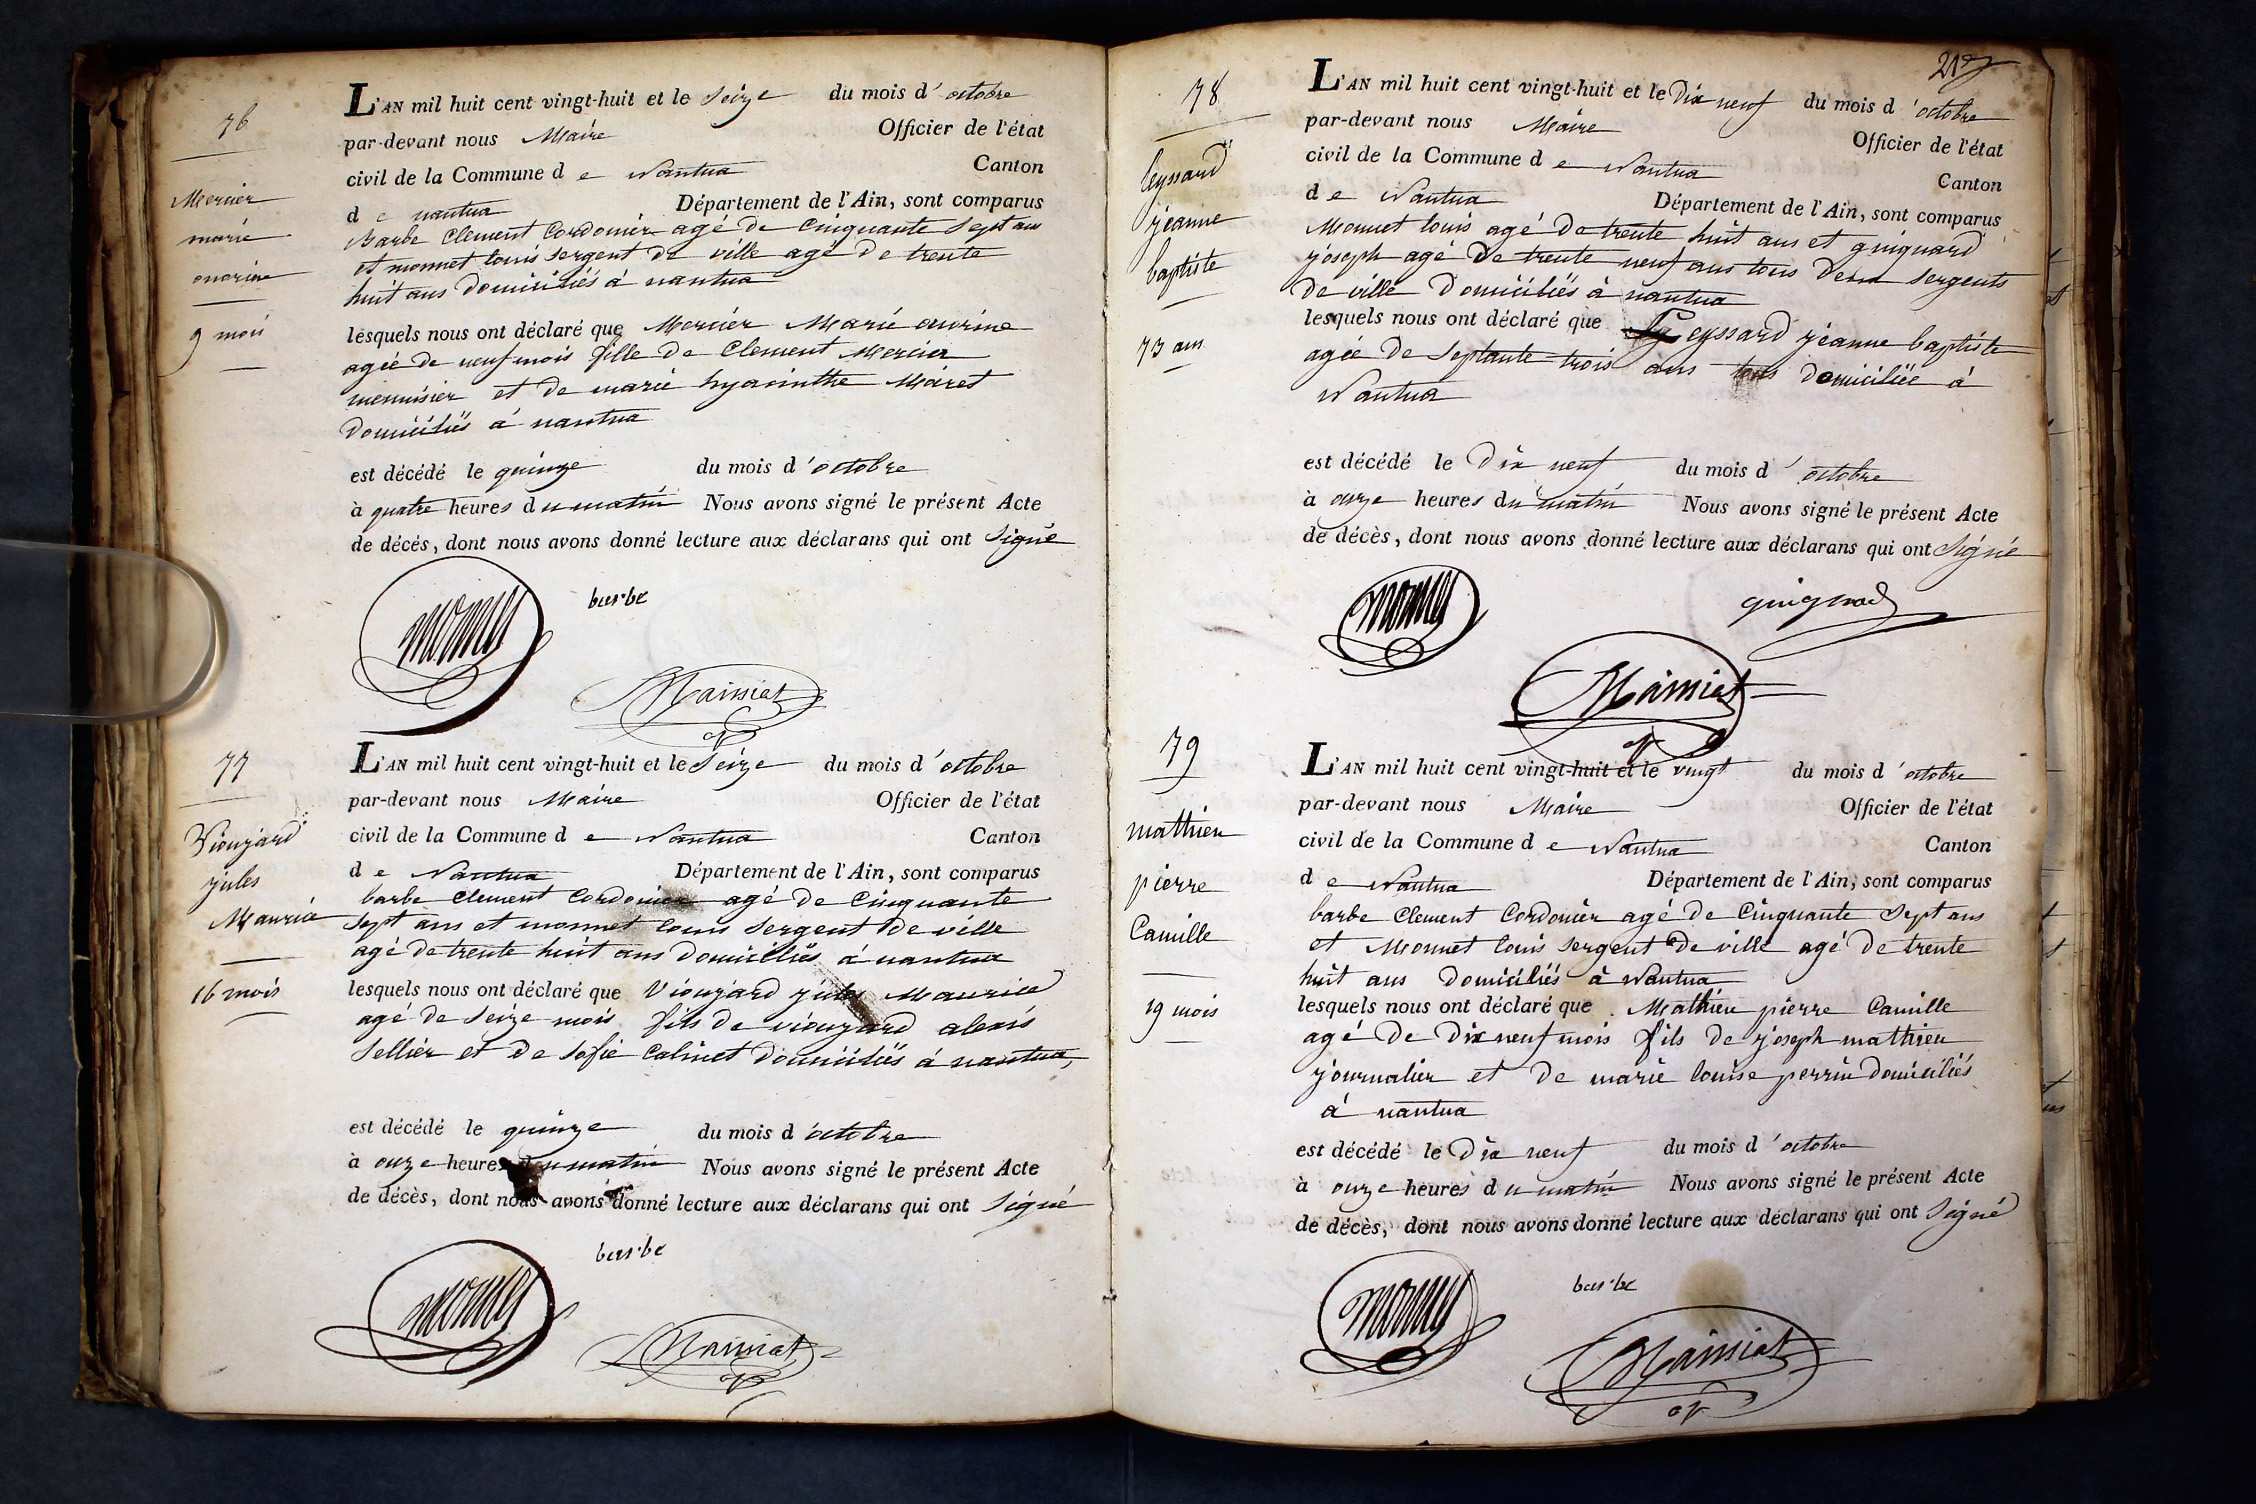 76
Mercier
marie
onorine
9 mois
L'AN mil huit cent vingt-huit et le seize du mois d'octobre
par-devant nous Maire Officier de l'état
civil de la Commune de Nantua Canton
de nantua Département de l'Ain, sont comparus
Barbe Clement Cordonier agé de Cinquante Sept ans
et monnet louis sergent de ville agé de trente
huit ans domiciliés à nantua
lesquels nous ont déclaré que Mercier Marie onorine
agée de neuf mois fille de Clement Mercier
menuisier et de marie hyacinthe Máret
domiciliés à nantua
est décédé le quinze du mois d'octobre
à quatre heures du matin Nous avons signé le présent Acte
de décès, dont nous avons donné lecture aux déclarans qui ont Signé
monnet
barbe
Mainiat
77
Viougeard
jules
Maurice
16 mois
L'AN mil huit cent vingt-huit et le Seize du mois d'octobre
par-devant nous Maire Officier de l'état
civil de la Commune de Nantua Canton
de Nantua Département de l'Ain, sont comparus
barbe Clement Cordonier agé de Cinquante
sept ans et monnet louis sergent de ville
agé de trente huit ans domiciliés à nantua
lesquels nous ont déclaré que jules Maurice
agé de seize mois fils de alexis
Sellier et de sofie domiciliés à nantua,
est décédé le quinze du mois d'octobre
à onze heures du matin Nous avons signé le présent Acte
de décès, dont nous avons donné lecture aux déclarans qui ont Signé
monnet
barbe
Mainiat
217
78
leyssard
jeanne
baptiste
73 ans
L'AN mil huit cent vingt-huit et le Dix neuf du mois d'octobre
par-devant nous Maire Officier de l'état
civil de la Commune de Nantua Canton
de Nantua Département de l'Ain, sont comparus
Monnet louis agé de trente huit ans et guignard
joseph agé de trente neuf ans tous deux sergents
de ville domiciliés à nantua
lesquels nous ont déclaré que Leyssard jeanne baptiste
agée de septante trois ans domiciliée à
Nantua
est décédé le Dix neuf du mois d'octobre
à onze heures du matin Nous avons signé le présent Acte
de décès, dont nous avons donné lecture aux déclarans qui ont Signé
monnet
guignard
Mainiat
79
mathieu
pierre
Camille
19 mois
L'AN mil huit cent vingt-huit et le vingt du mois d'octobre
par-devant nous Maire Officier de l'état
civil de la Commune de Nantua Canton
de Nantua Département de l'Ain, sont comparus
barbe Clement Cordonier agé de Cinquante Sept ans
et Monnet louis sergent de ville agé de trente
huit ans domiciliés à Nantua
lesquels nous ont déclaré que Mathieu pierre Camille
agé de Dix neuf mois fils de joseph mathieu
journalier et de marie louise perrin domiciliés
à nantua
est décédé le Dix neuf du mois d'octobre
à onze heures du matin Nous avons signé le présent Acte
de décès, dont nous avons donné lecture aux déclarans qui ont Signé
monnet
barbe
Mainiat